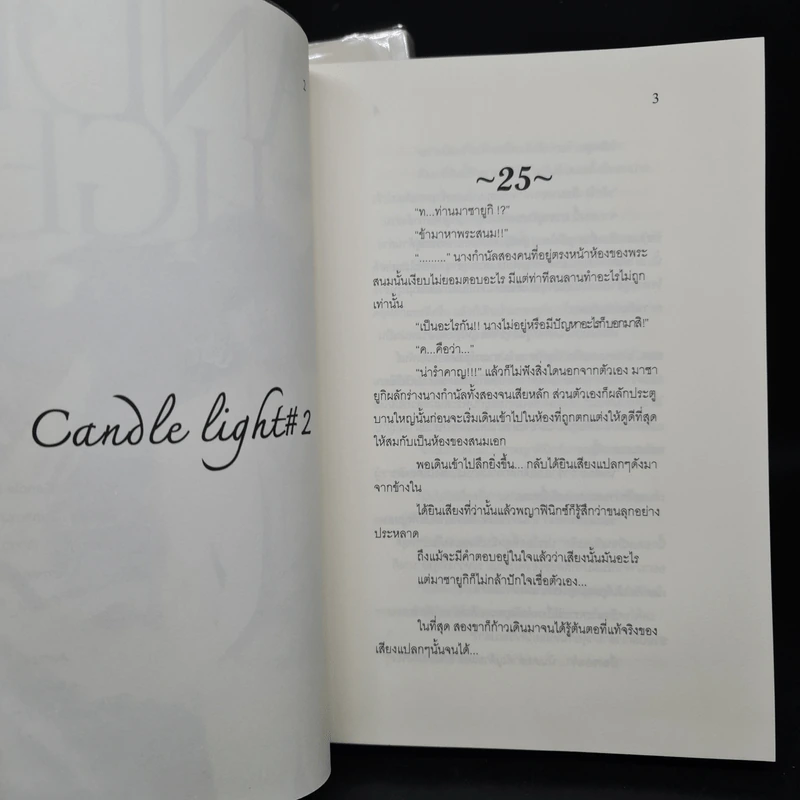 2
Candle light#2
3
~25~
"ท...ท่านมาซายูกิ !?"
"ข้ามาหาพระสนม!!"
"........." นางกำนัลสองคนที่อยู่ตรงหน้าห้องของพระ
สนมนั้นเงียบไม่ยอมตอบอะไร มีแต่ท่าทีลนลานทำอะไรไม่ถูก
เท่านั้น
"เป็นอะไรกัน!! นางไม่อยู่หรือมีปัญหาอะไรก็บอกมาสิ!"
"ค...คือว่า..."
"น่ารำคาญ!!!" แล้วก็ไม่ฟังสิ่งใดนอกจากตัวเอง มาซา
ยูกิผลักร่างนางกำนัลทั้งสองจนเสียหลัก ส่วนตัวเองก็ผลักประตู
บานใหญ่นั้นก่อนจะเริ่มเดินเข้าไปในห้องที่ถูกตกแต่งให้ดูดีที่สุด
ให้สมกับเป็นห้องของสนมเอก
พอเดินเข้าไปลึกยิ่งขึ้น... กลับได้ยินเสียงแปลกๆดังมา
จากข้างใน
ได้ยินเสียงที่ว่านั้นแล้วพญาฟินิกซ์ก็รู้สึกว่าขนลุกอย่าง
ประหลาด
ถึงแม้จะมีคำตอบอยู่ในใจแล้วว่าเสียงนั้นมันอะไร
แต่มาซายูกิก็ไม่กล้าปักใจเชื่อตัวเอง...
ในที่สุด สองขาก็ก้าวเดินมาจนได้รู้ต้นตอที่แท้จริงของ
เสียงแปลกๆนั้นจนได้...